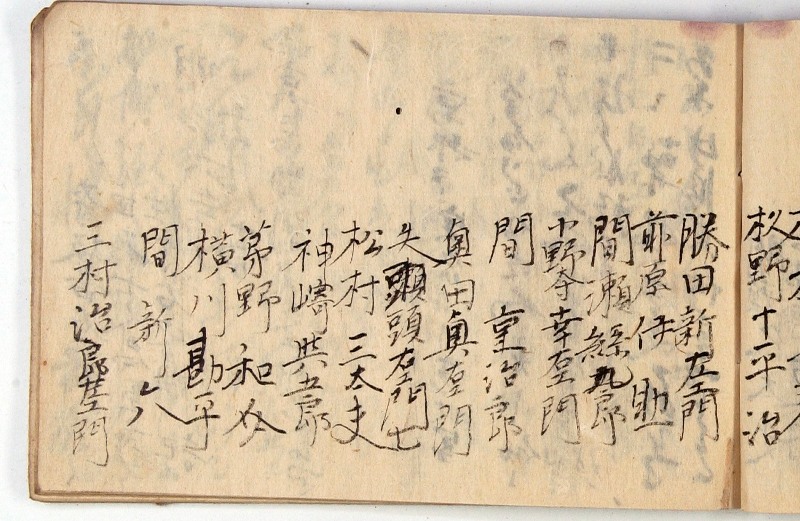 杦野十平治
勝田新左エ門
前原伊助
間瀬孫九郎
小野寺幸右エ門
間重治郎
奥田貞右エ門
矢頭右エ門七
松村三太夫
神崎与五郎
茅野和介
横川勘平
間新八
三村治郎左エ門